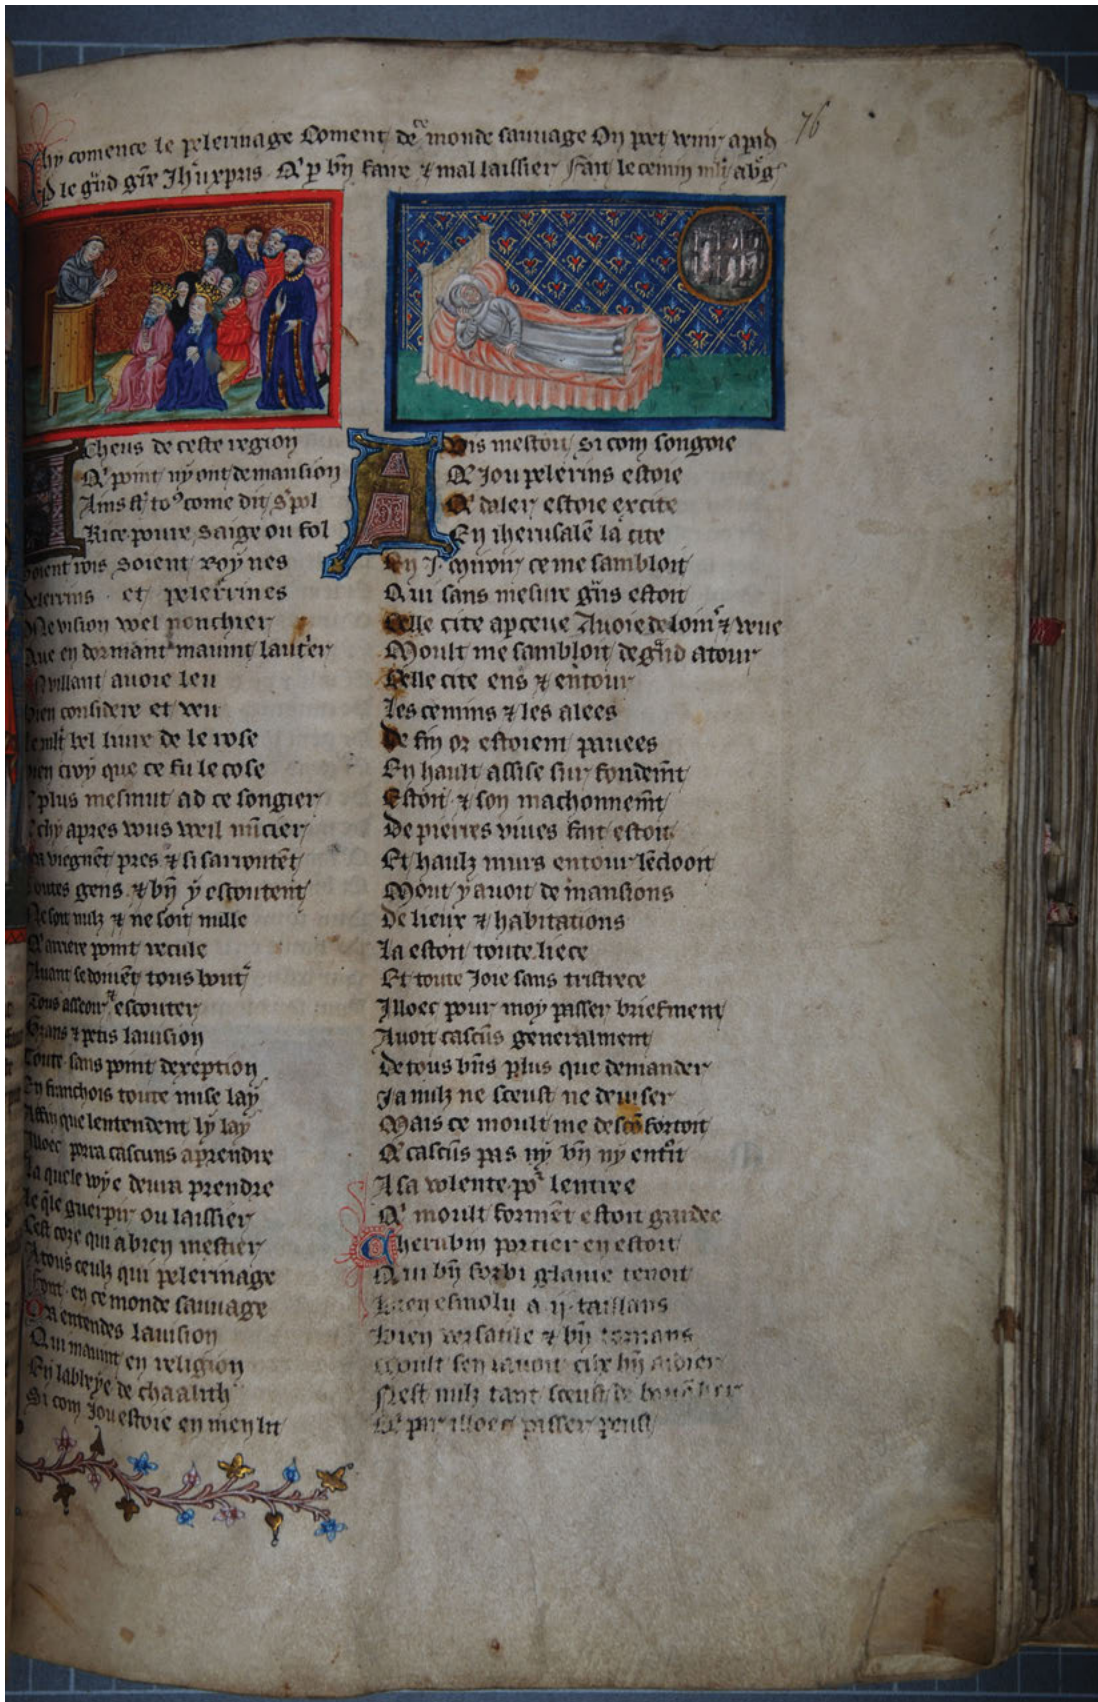 76
Chy comence le pelerinage Coment de ce monde sauuage On pet venir apad
P le gnd gre Jhu xpris Q p bn faire & mal laissier Fait le cemin
A Cheus de ceste region
Q point ny ont de mansion
Ains st to9 come dit s pol
Rice poure saige ou fol
Soient rois soient roynes
Pelerins et pelerrines
Vne vision voel nonchier
Que en dormant mauint lautrer
En villant auoie leu
Bien considere et veu
Le mlt bel liure de le rose
Bien croy que ce fu le cose
plus mesmut ad ce songier
chy apres vous veil nucier
viegnet pres & si sarroutet
Toutes gens & bn y escoutent
Ne soit nulz & ne soit nulle
Q arriere point recule
Auant se doiuet tous bout
Tous asseoir escouter
Grans & petis lauision
Toute sans point dexeption
En franchois toute mise lay
Affin que lentendent ly lay
Illoec porra cascuns aprendre
La quele voye deura prendre
Le qle guerpir ou laissier
Cest coze qui a bien mestier
A tous ceulz qui pelerinage
Font en ce monde sauuage
Or entendes lauision
Qui mauint en religion
En labbeye de chaalith
Si com Jou estoie en men lit
A Vis mestoit si com songoie
Q Jou pelerins estoie
Q daler estoie excite
En iherusale la cite
En J miroir ce me sambloit
Qui sans mesure gns estoit
Celle cite aperceue Auoie de loing & veue
Moult me sambloit de gnd atour
Celle cite ens & entour
Les cemins & les alees
De fin or estoient pauees
En hault assise sur fondemt
Estoit & son machonnemt
De pierres viues fait estoit
Et haulz murs entour leclooit
Mont y auoit de mansions
De lieux & habitations
La estoit toute liece
Et toute Joie sans tristrece
Illoec pour moy passer briefment
Auoit cascus generalment
De tous bns plus que demander
Ja nulz ne sceust ne deuiser
Mais ce moult me descofortoit
Q cascus pas ny bn ny entrit
A sa volente po lentree
Q moult formet estoit gardee
Cherubin portier en estoit
Qui bn forbi glaiue tenoit
Bien esmolu a ij taillans
Bien versatile & bn tornans
Moult sen sauoit cilx bn aidier
Nest nulz tant sceust de bouclier
Q par illoec passer peust